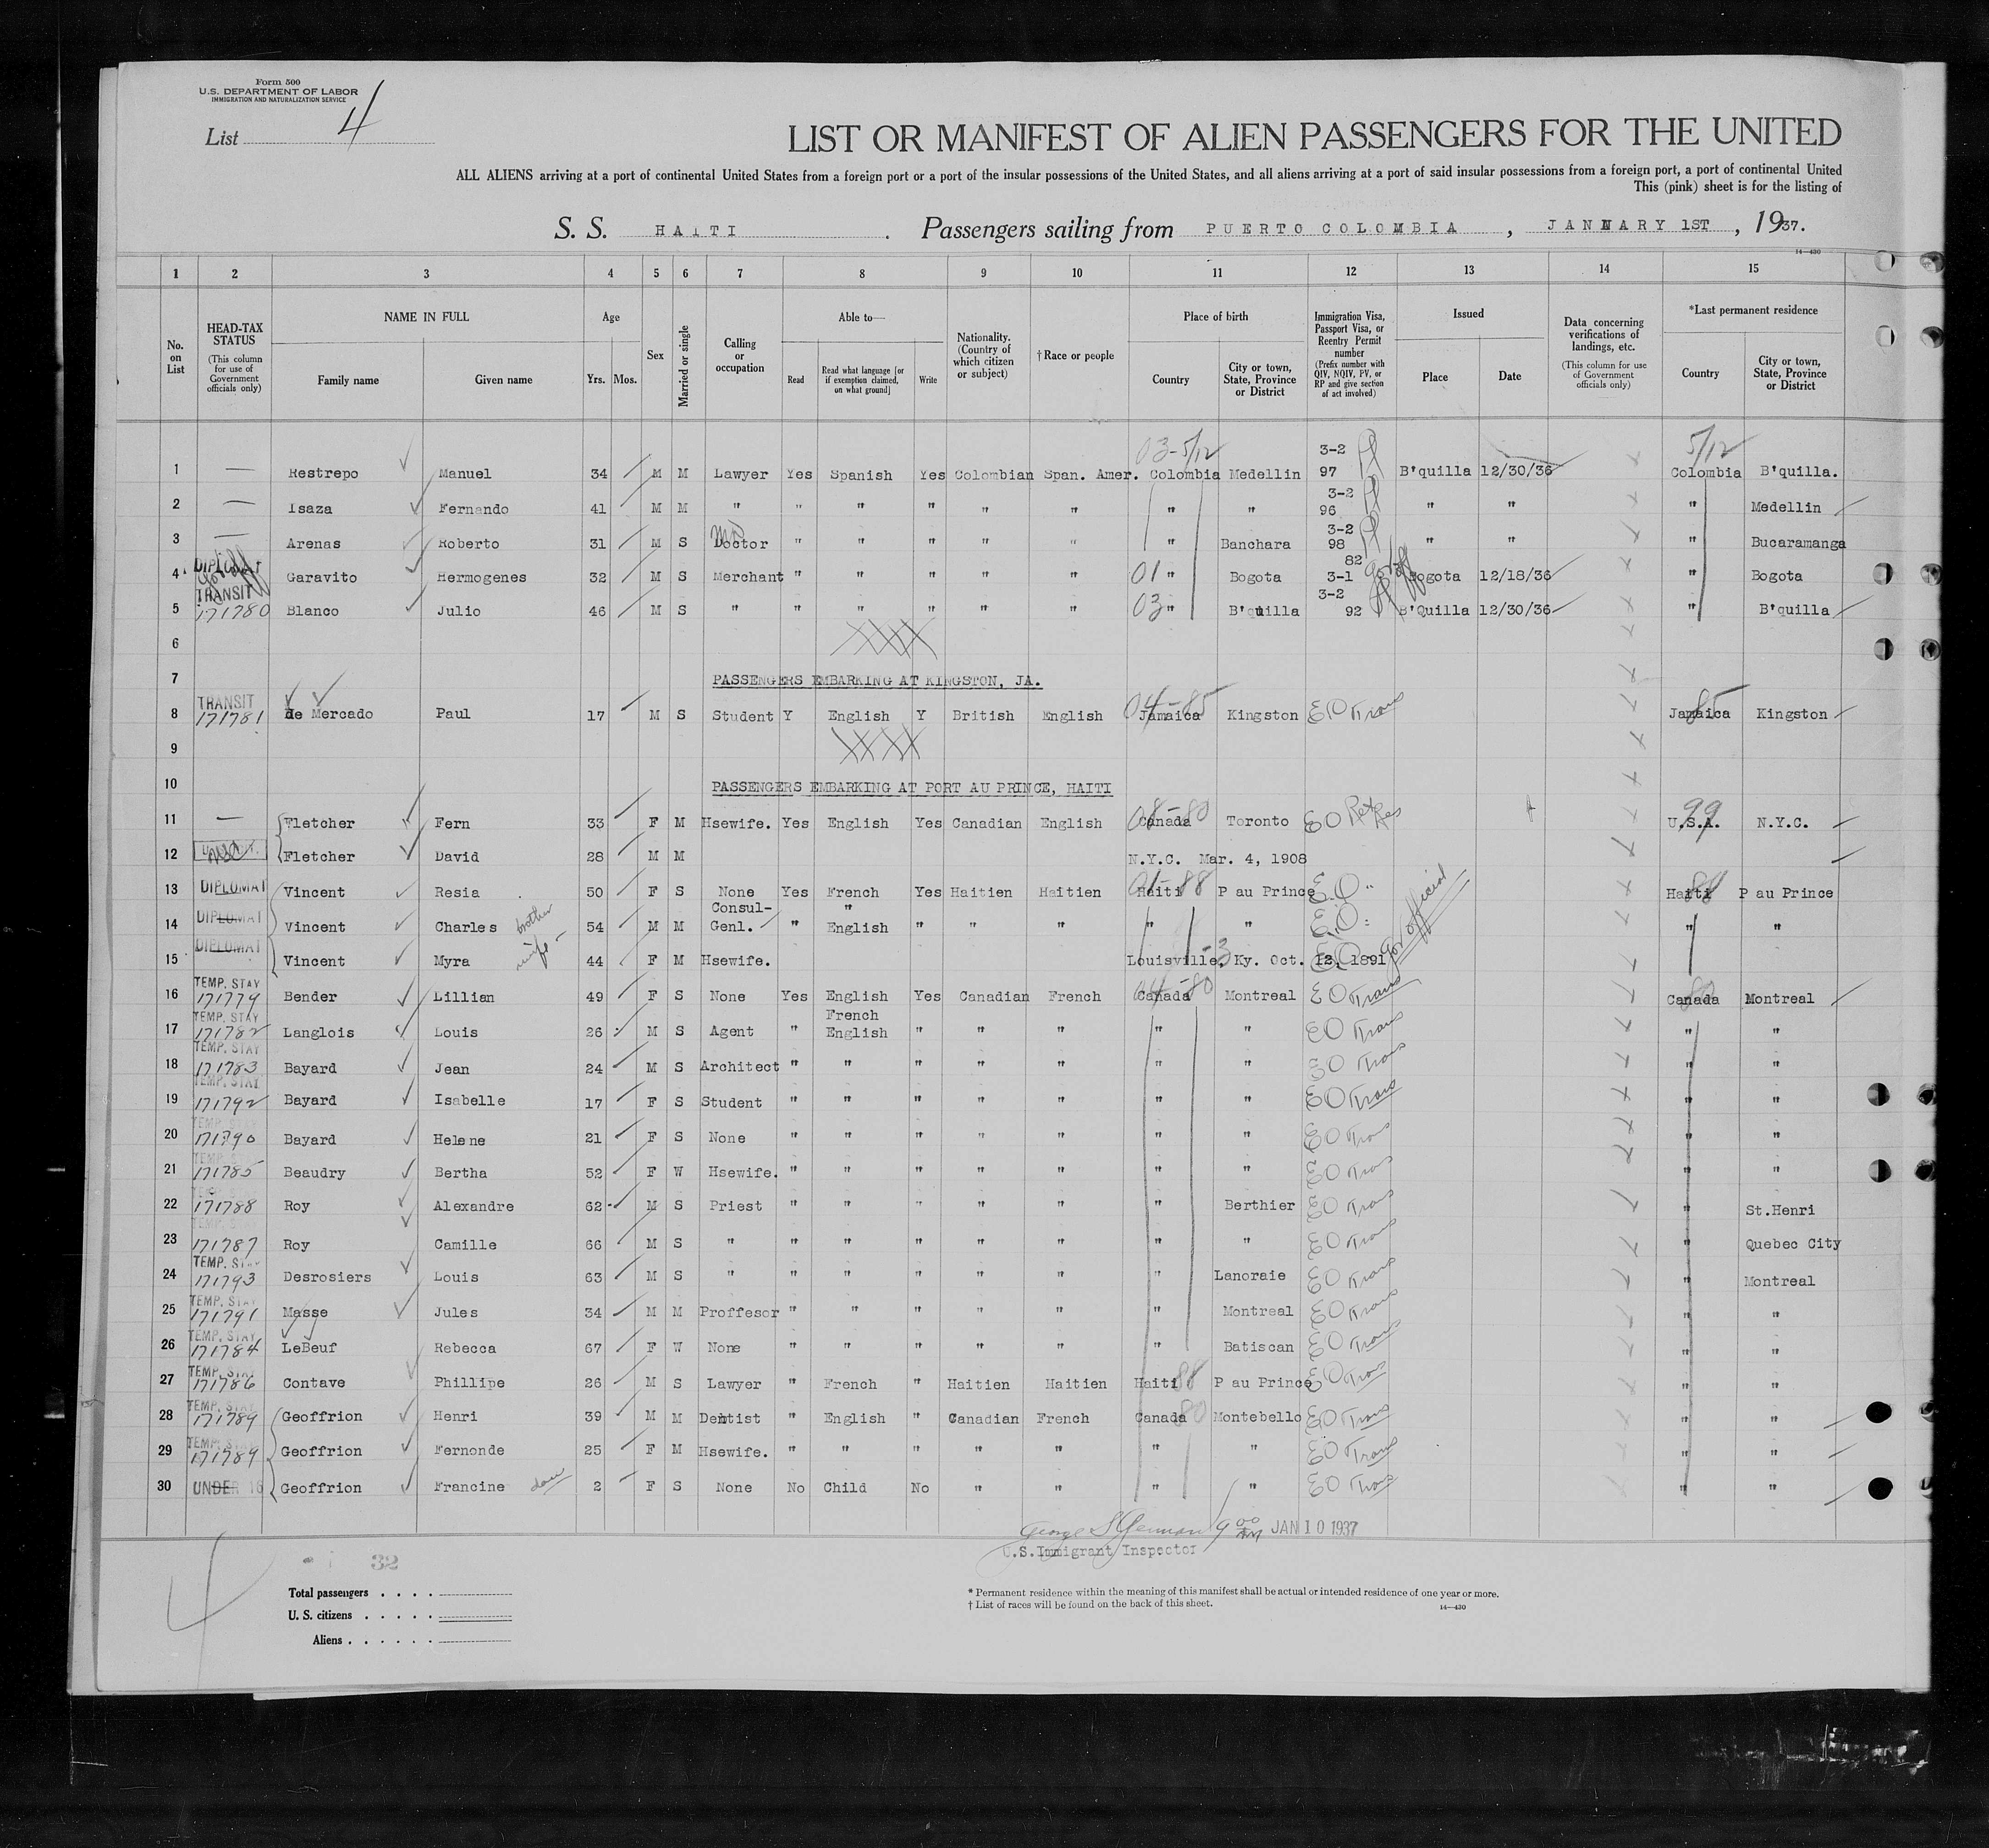 Form 500
U.S. DEPARTMENT OF LABOR
IMMIGRATION AND NATURALIZATION SERVICE
List 4
LIST OR MANIFEST OF ALIEN PASSENGERS FOR THE UNITED
ALL ALIENS arriving at a port of continental United States from a foreign port or a port of the insular possessions of the United States, and all aliens arriving at a port of said insular possessions from a foreign port, a port of continental United
This (pink) sheet is for the listing of
S. S. HAITI . Passengers sailing from PUERTO COLOMBIA , JANUARY 1ST , 1937.
14—430
1 2 3 4 5 6 7 8 9 10 11 12 13 14 15
No. on List
HEAD-TAX STATUS (This column for use of Government officials only)
NAME IN FULL Family name Given name
Age Yrs. Mos.
Sex
Married or single
Calling or occupation
Able to— Read Read what language [or if exemption claimed, on what ground] Write
Nationality. (Country of which citizen or subject)
†Race or people
Place of birth Country City or town, State, Province or District
Immigration Visa, Passport Visa, or Reentry Permit number (Prefix number with QIV, NQIV, PV, or RP and give section of act involved)
Issued Place Date
Data concerning verifications of landings, etc. (This column for use of Government officials only)
*Last permanent residence Country City or town, State, Province or District
03-5/12 3-2 5/12
1 — Restrepo Manuel 34 M M Lawyer Yes Spanish Yes Colombian Span. Amer. Colombia Medellin 97 B'quilla 12/30/36 Colombia B'quilla.
3-2
2 — Isaza Fernando 41 M M " " " " " " " " 96 " " " Medellin
3-2
3 — Arenas Roberto 31 M S Doctor " " " " " " Banchara 98 " " " Bucaramanga
DIPLOMAT 82
4 Garavito Hermogenes 32 M S Merchant " " " " " 01 " Bogota 3-1 Bogota 12/18/36 " Bogota
TRANSIT 3-2
5 171780 Blanco Julio 46 M S " " " " " " 03 " B'quilla 92 B'Quilla 12/30/36 " B'quilla
6 XXXX
7 PASSENGERS EMBARKING AT KINGSTON, JA.
TRANSIT 04-85 85
8 171781 de Mercado Paul 17 M S Student Y English Y British English Jamaica Kingston EO Trans Jamaica Kingston
9 XXXX
10 PASSENGERS EMBARKING AT PORT AU PRINCE, HAITI
08-80 99
11 — Fletcher Fern 33 F M Hsewife. Yes English Yes Canadian English Canada Toronto EO Ret Res U.S.A. N.Y.C.
12 Fletcher David 28 M M N.Y.C. Mar. 4, 1908
13 DIPLOMAT Vincent Resia 50 F S None Yes French Yes Haitien Haitien 01-88 Haiti P au Prince E.O. Haiti 88 P au Prince
Consul- "
14 DIPLOMAT Vincent Charles brother 54 M M Genl. " English " " " " " E.O. " "
15 DIPLOMAT Vincent Myra wife 44 F M Hsewife. Louisville, Ky. Oct. 12, 1891 Gov official
TEMP. STAY 04-80 80
16 171779 Bender Lillian 49 F S None Yes English Yes Canadian French Canada Montreal EO Trans Canada Montreal
TEMP. STAY French
17 171782 Langlois Louis 26 M S Agent " English " " " " " EO Trans " "
TEMP. STAY
18 171783 Bayard Jean 24 M S Architect " " " " " " " EO Trans " "
TEMP. STAY
19 171792 Bayard Isabelle 17 F S Student " " " " " " " EO Trans " "
20 171790 Bayard Helene 21 F S None " " " " " " " EO Trans " "
21 171785 Beaudry Bertha 52 F W Hsewife. " " " " " " " EO Trans " "
22 171788 Roy Alexandre 62 M S Priest " " " " " " Berthier EO Trans " St.Henri
23 171787 Roy Camille 66 M S " " " " " " " " EO Trans " Quebec City
TEMP. STAY
24 171793 Desrosiers Louis 63 M S " " " " " " " Lanoraie EO Trans " Montreal
TEMP. STAY
25 171791 Masse Jules 34 M M Proffesor " " " " " " Montreal EO Trans " "
TEMP. STAY
26 171784 LeBeuf Rebecca 67 F W None " " " " " " Batiscan EO Trans " "
TEMP. STAY
27 171786 Contave Phillipe 26 M S Lawyer " French " Haitien Haitien Haiti 88 P au Prince EO Trans " "
TEMP. STAY
28 171789 Geoffrion Henri 39 M M Dentist " English " Canadian French Canada 80 Montebello EO Trans " "
TEMP. STAY
29 171789 Geoffrion Fernonde 25 F M Hsewife. " " " " " " " EO Trans " "
30 UNDER 16 Geoffrion Francine dau 2 F S None No Child No " " " " EO Trans " "
George S German 9 00 AM JAN 10 1937
U.S.Immigrant Inspector
32
Total passengers . . . .
U. S. citizens . . . . .
Aliens . . . . . .
* Permanent residence within the meaning of this manifest shall be actual or intended residence of one year or more.
† List of races will be found on the back of this sheet. 14—430